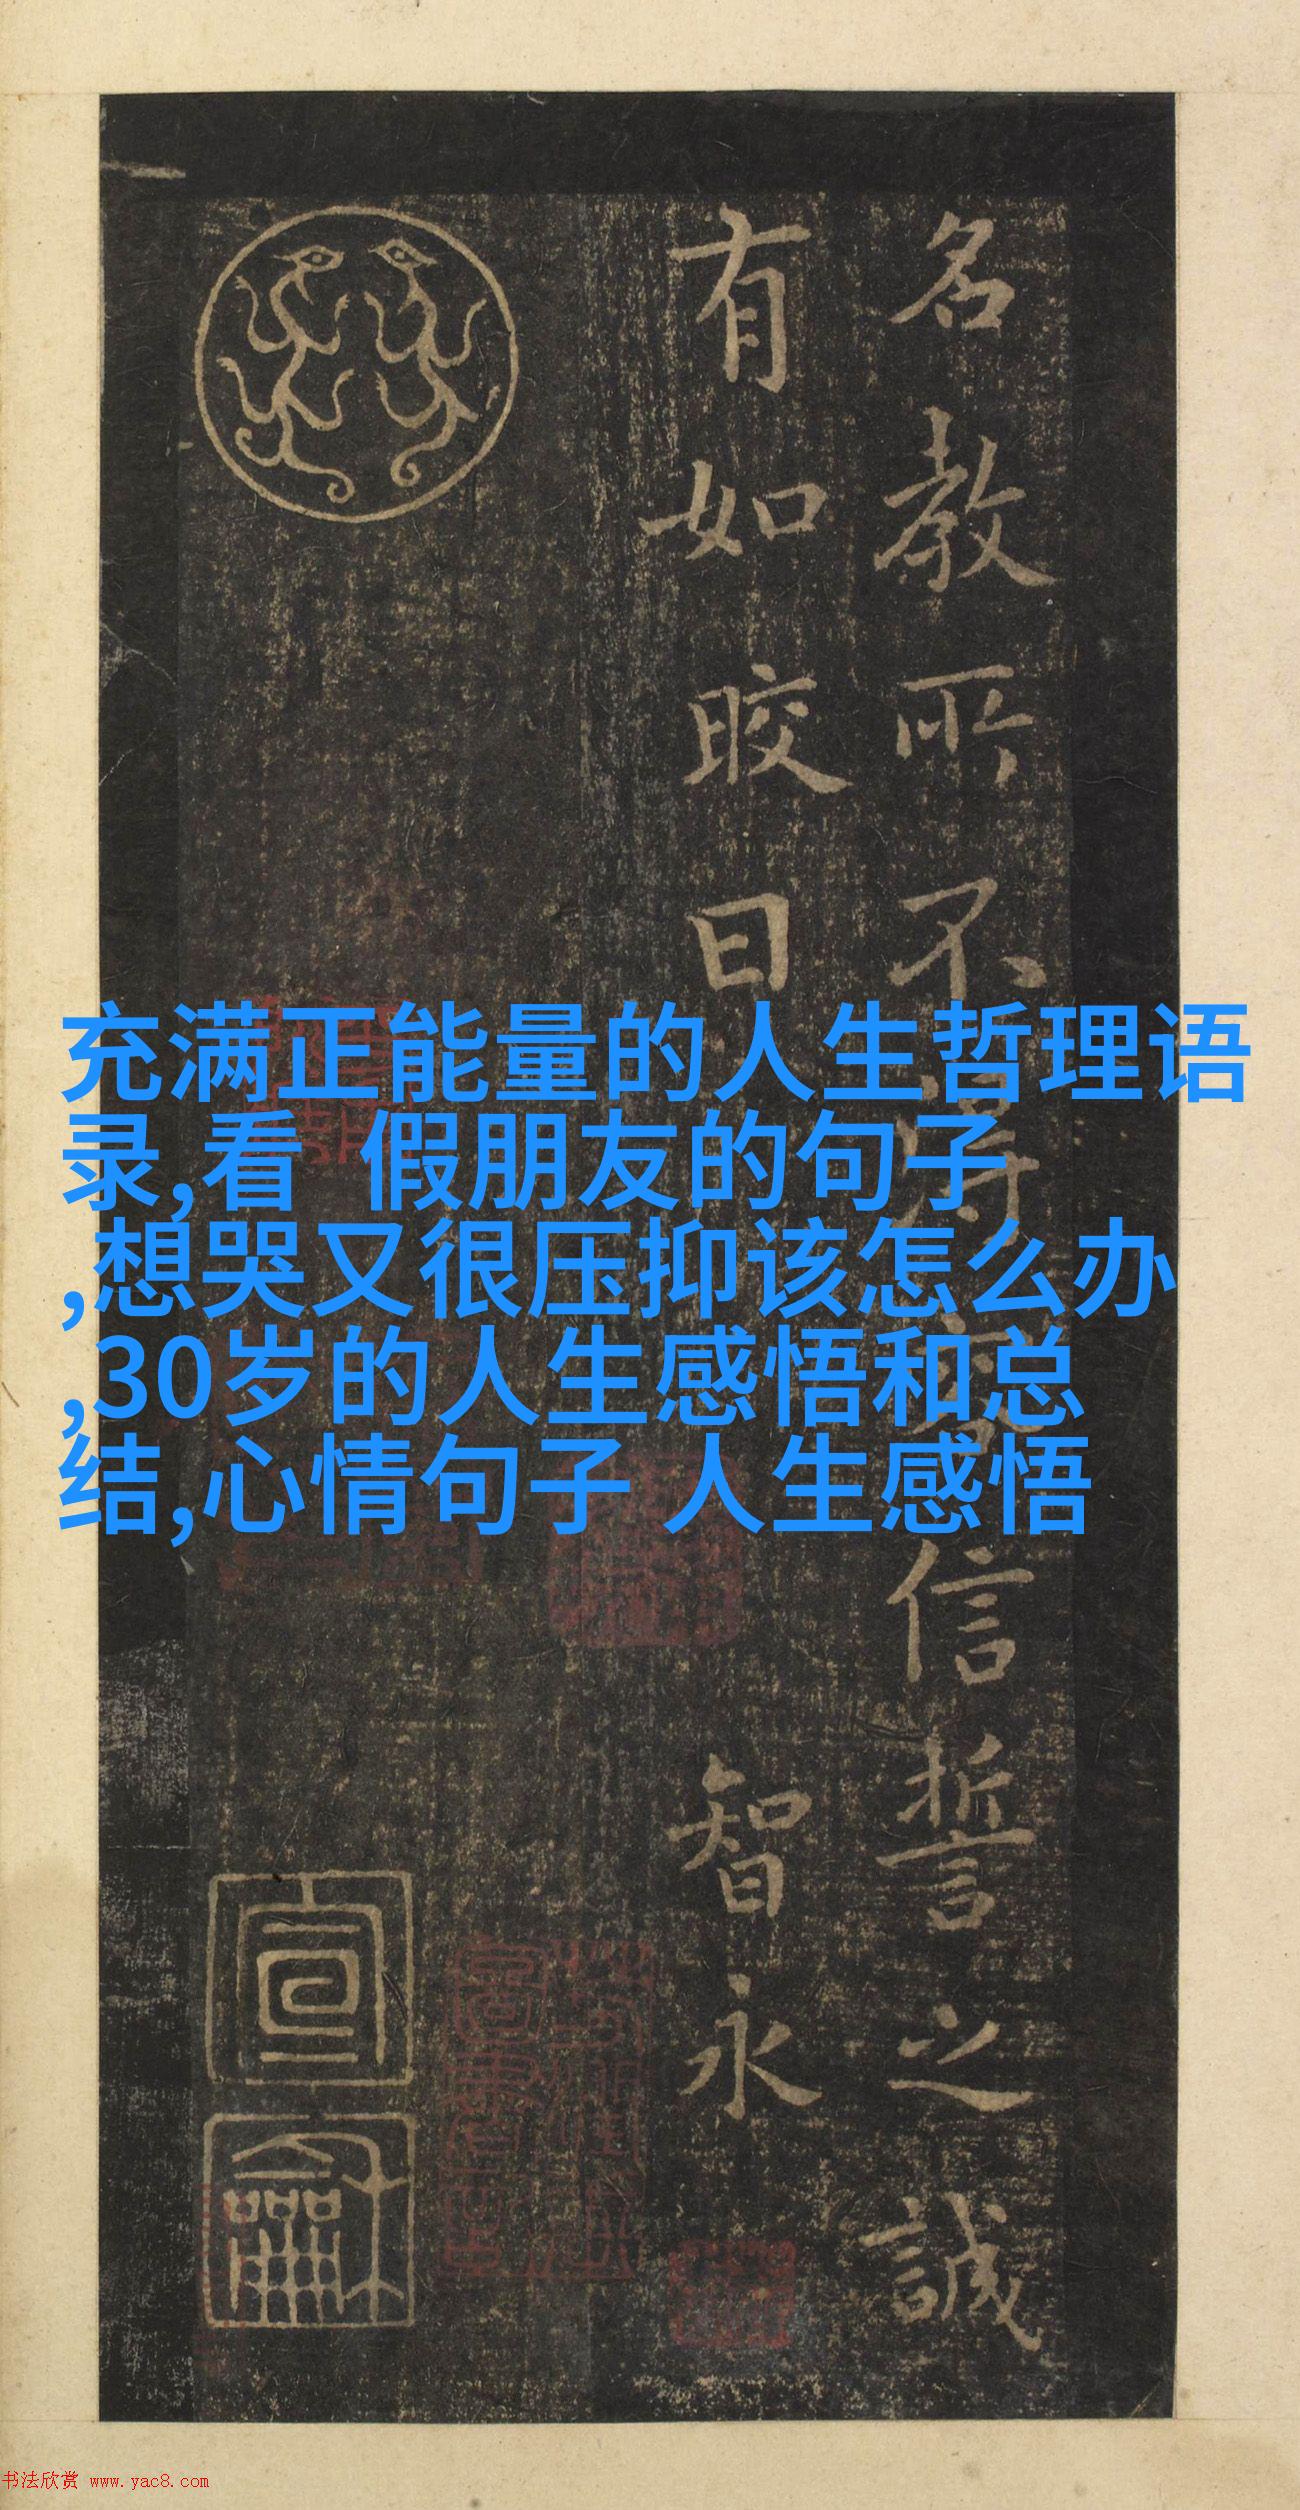 名教所不得容信誓之誠
有如晈日
智永
宣
龢
充满正能量的人生哲理语
录,看 假朋友的句子
,想哭又很压抑该怎么办
,30岁的人生感悟和总
结,心情句子 人生感悟
书法欣赏 www.yac8.com